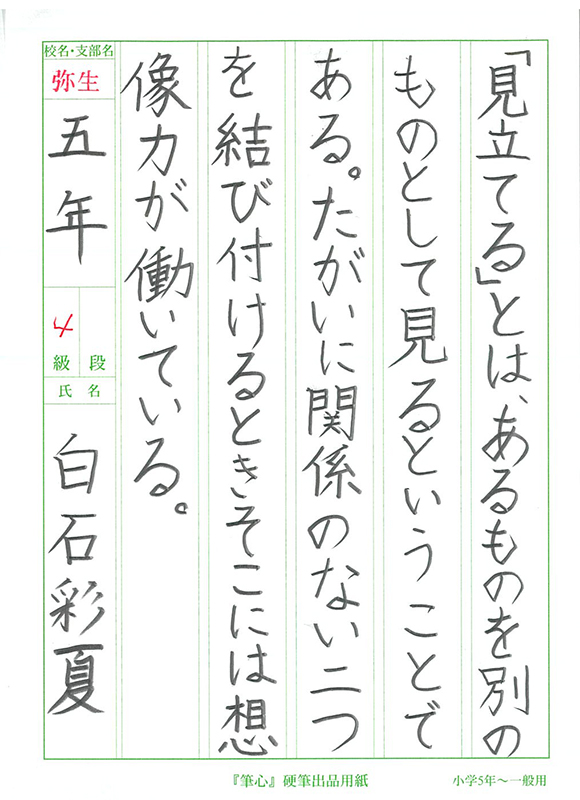 「見立てる」とは、あるものを別の
ものとして見るということで
ある。たがいに関係のない二つ
を結び付けるときそこには想
像力が働いている。
校名・支部名
弥生
五年
級 段
氏名
白石彩夏
『筆心』硬筆出品用紙
小学5年〜一般用